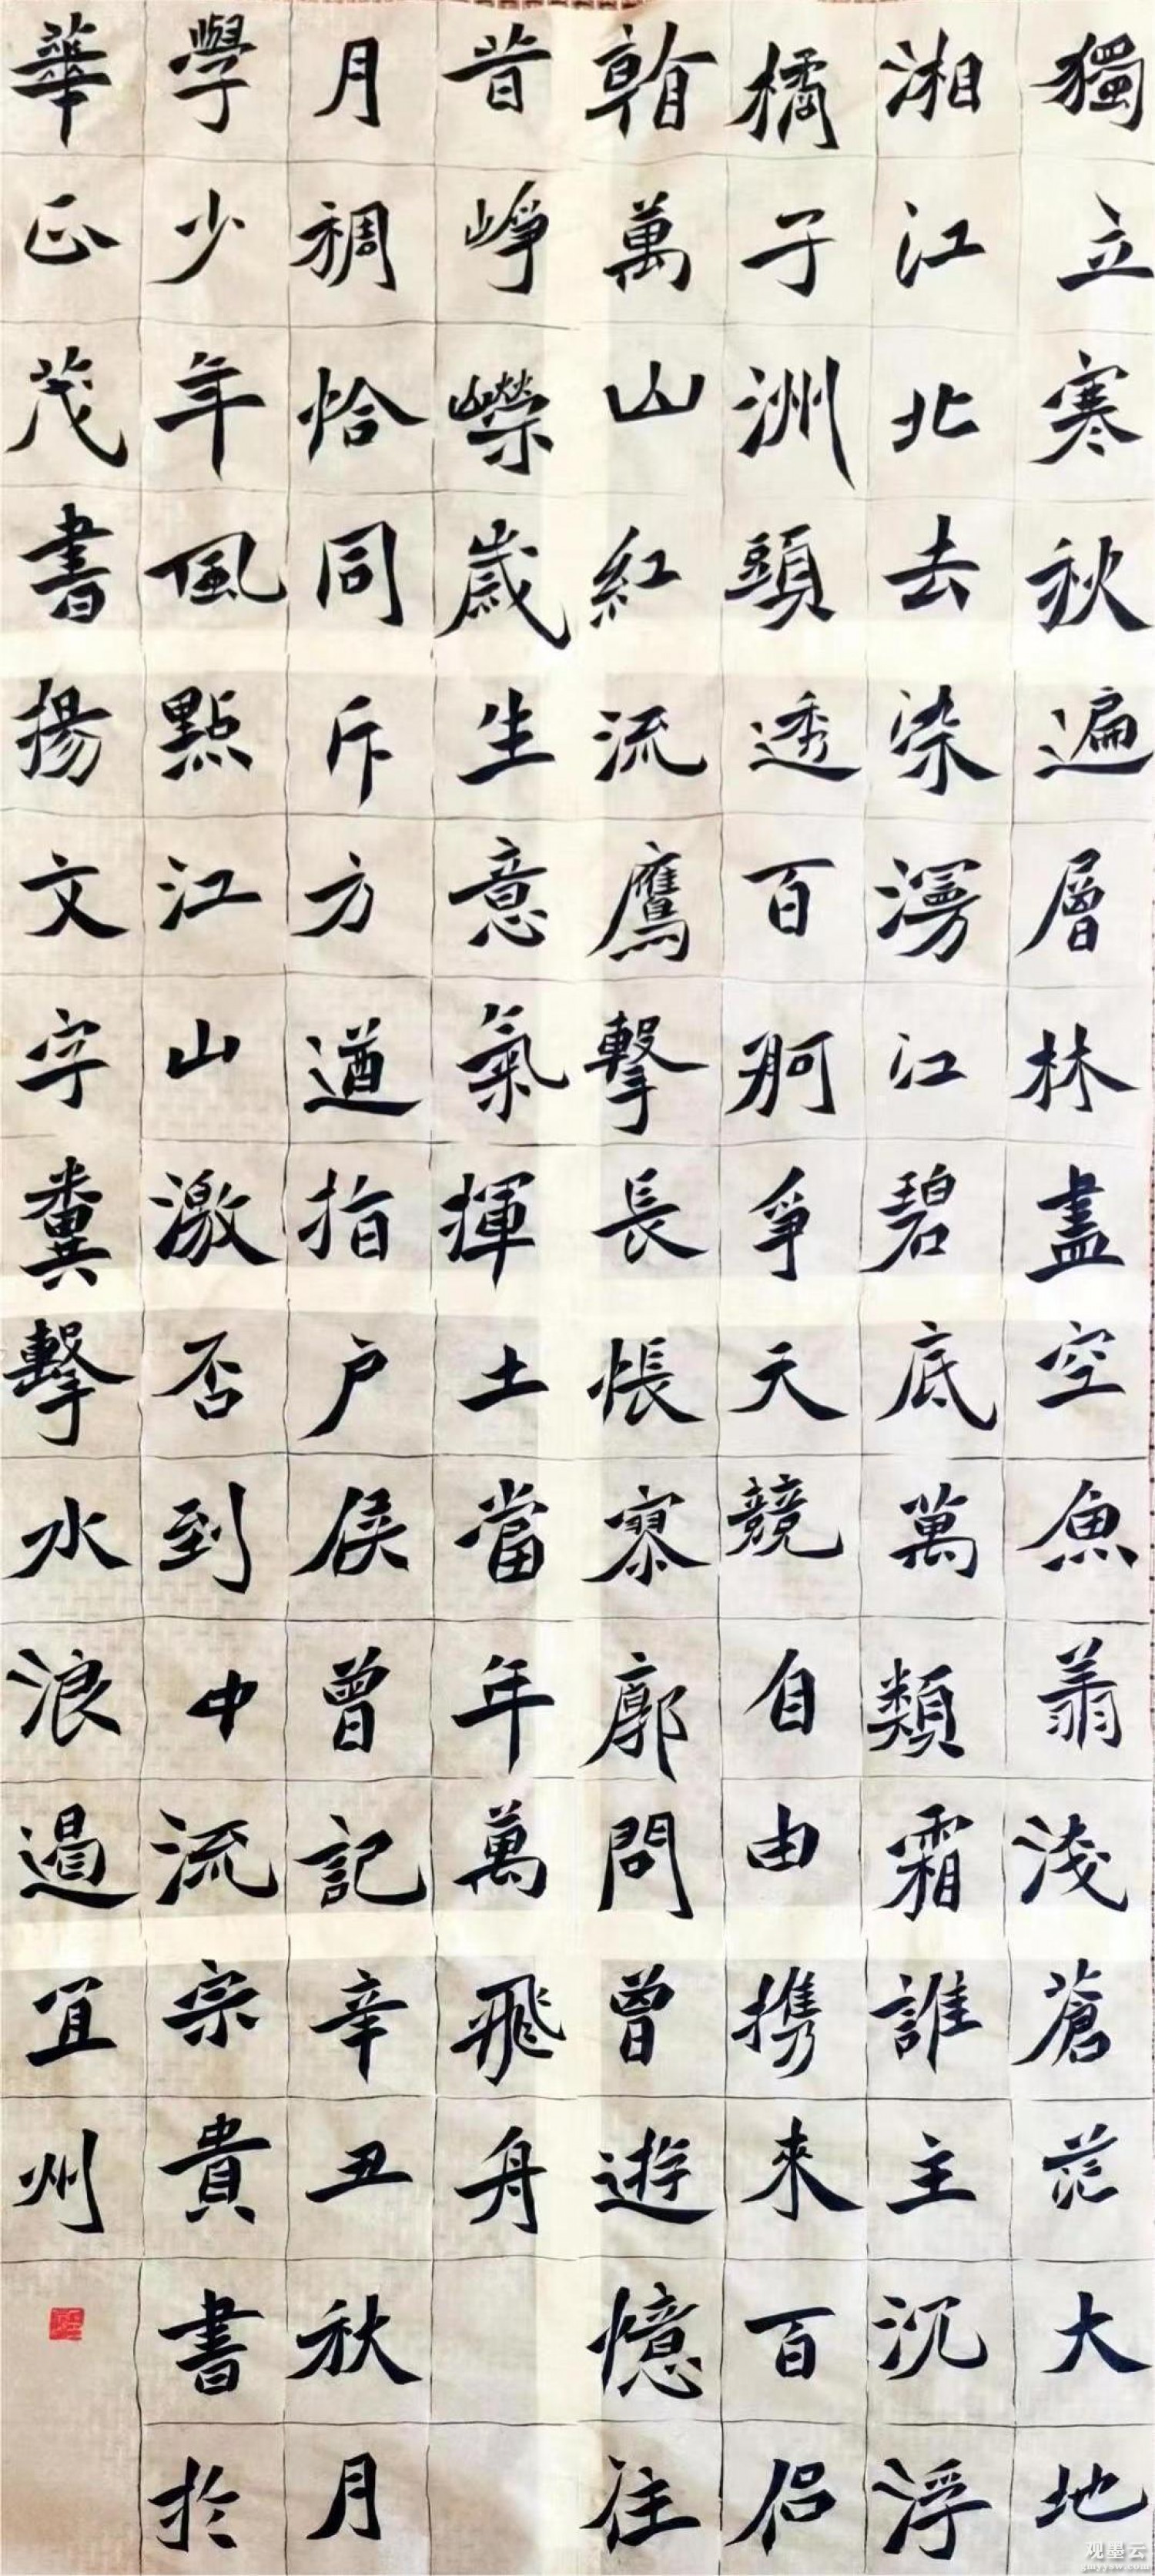 獨立寒秋
湘江北去
橘子洲頭
看萬山紅
遍層林盡
染漫江碧
透百舸爭
流鷹擊長
空魚翔淺
底萬類霜
天競自由
悵寥廓問
蒼茫大地
誰主沉浮
携來百侶
曾遊憶往
昔崢嶸歲
月稠恰同
學少年風
華正茂書
生意氣揮
斥方遒指
點江山激
揚文字糞
土當年萬
戶侯曾記
否到中流
擊水浪遏
飛舟
辛丑秋月
宗貴書於
宜州
观墨云